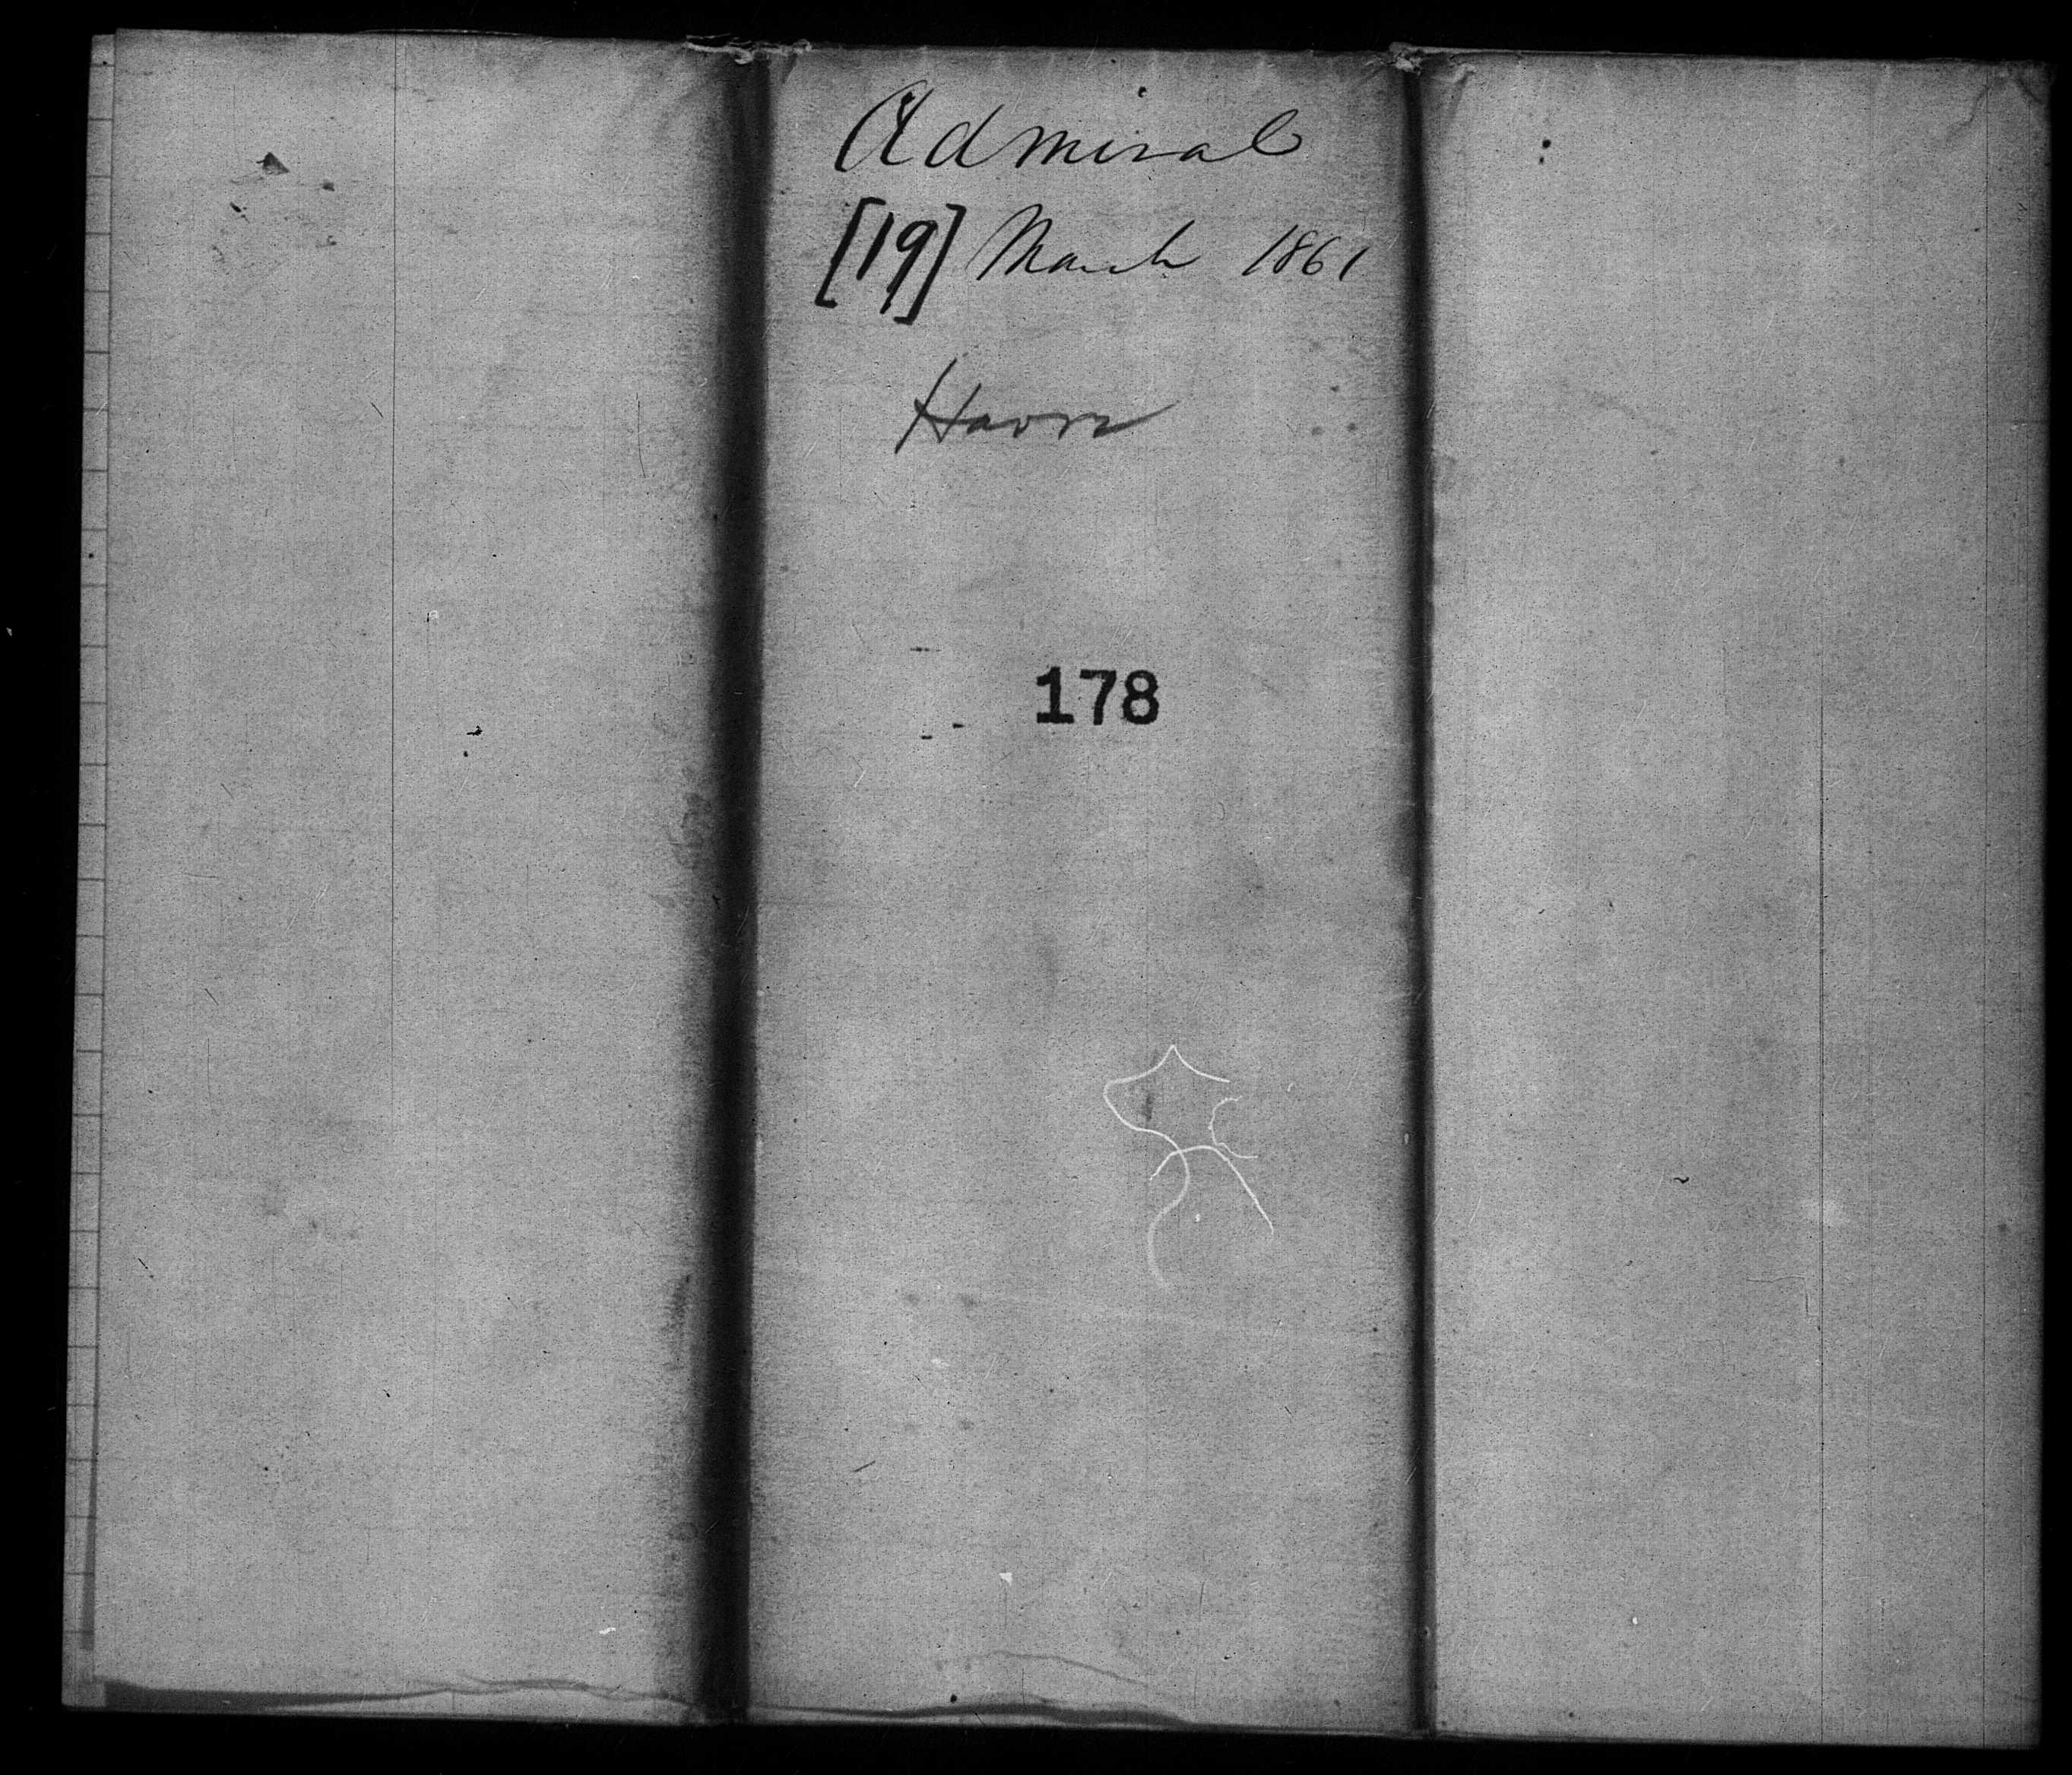 Admiral
[19] March 1861
Havre
178